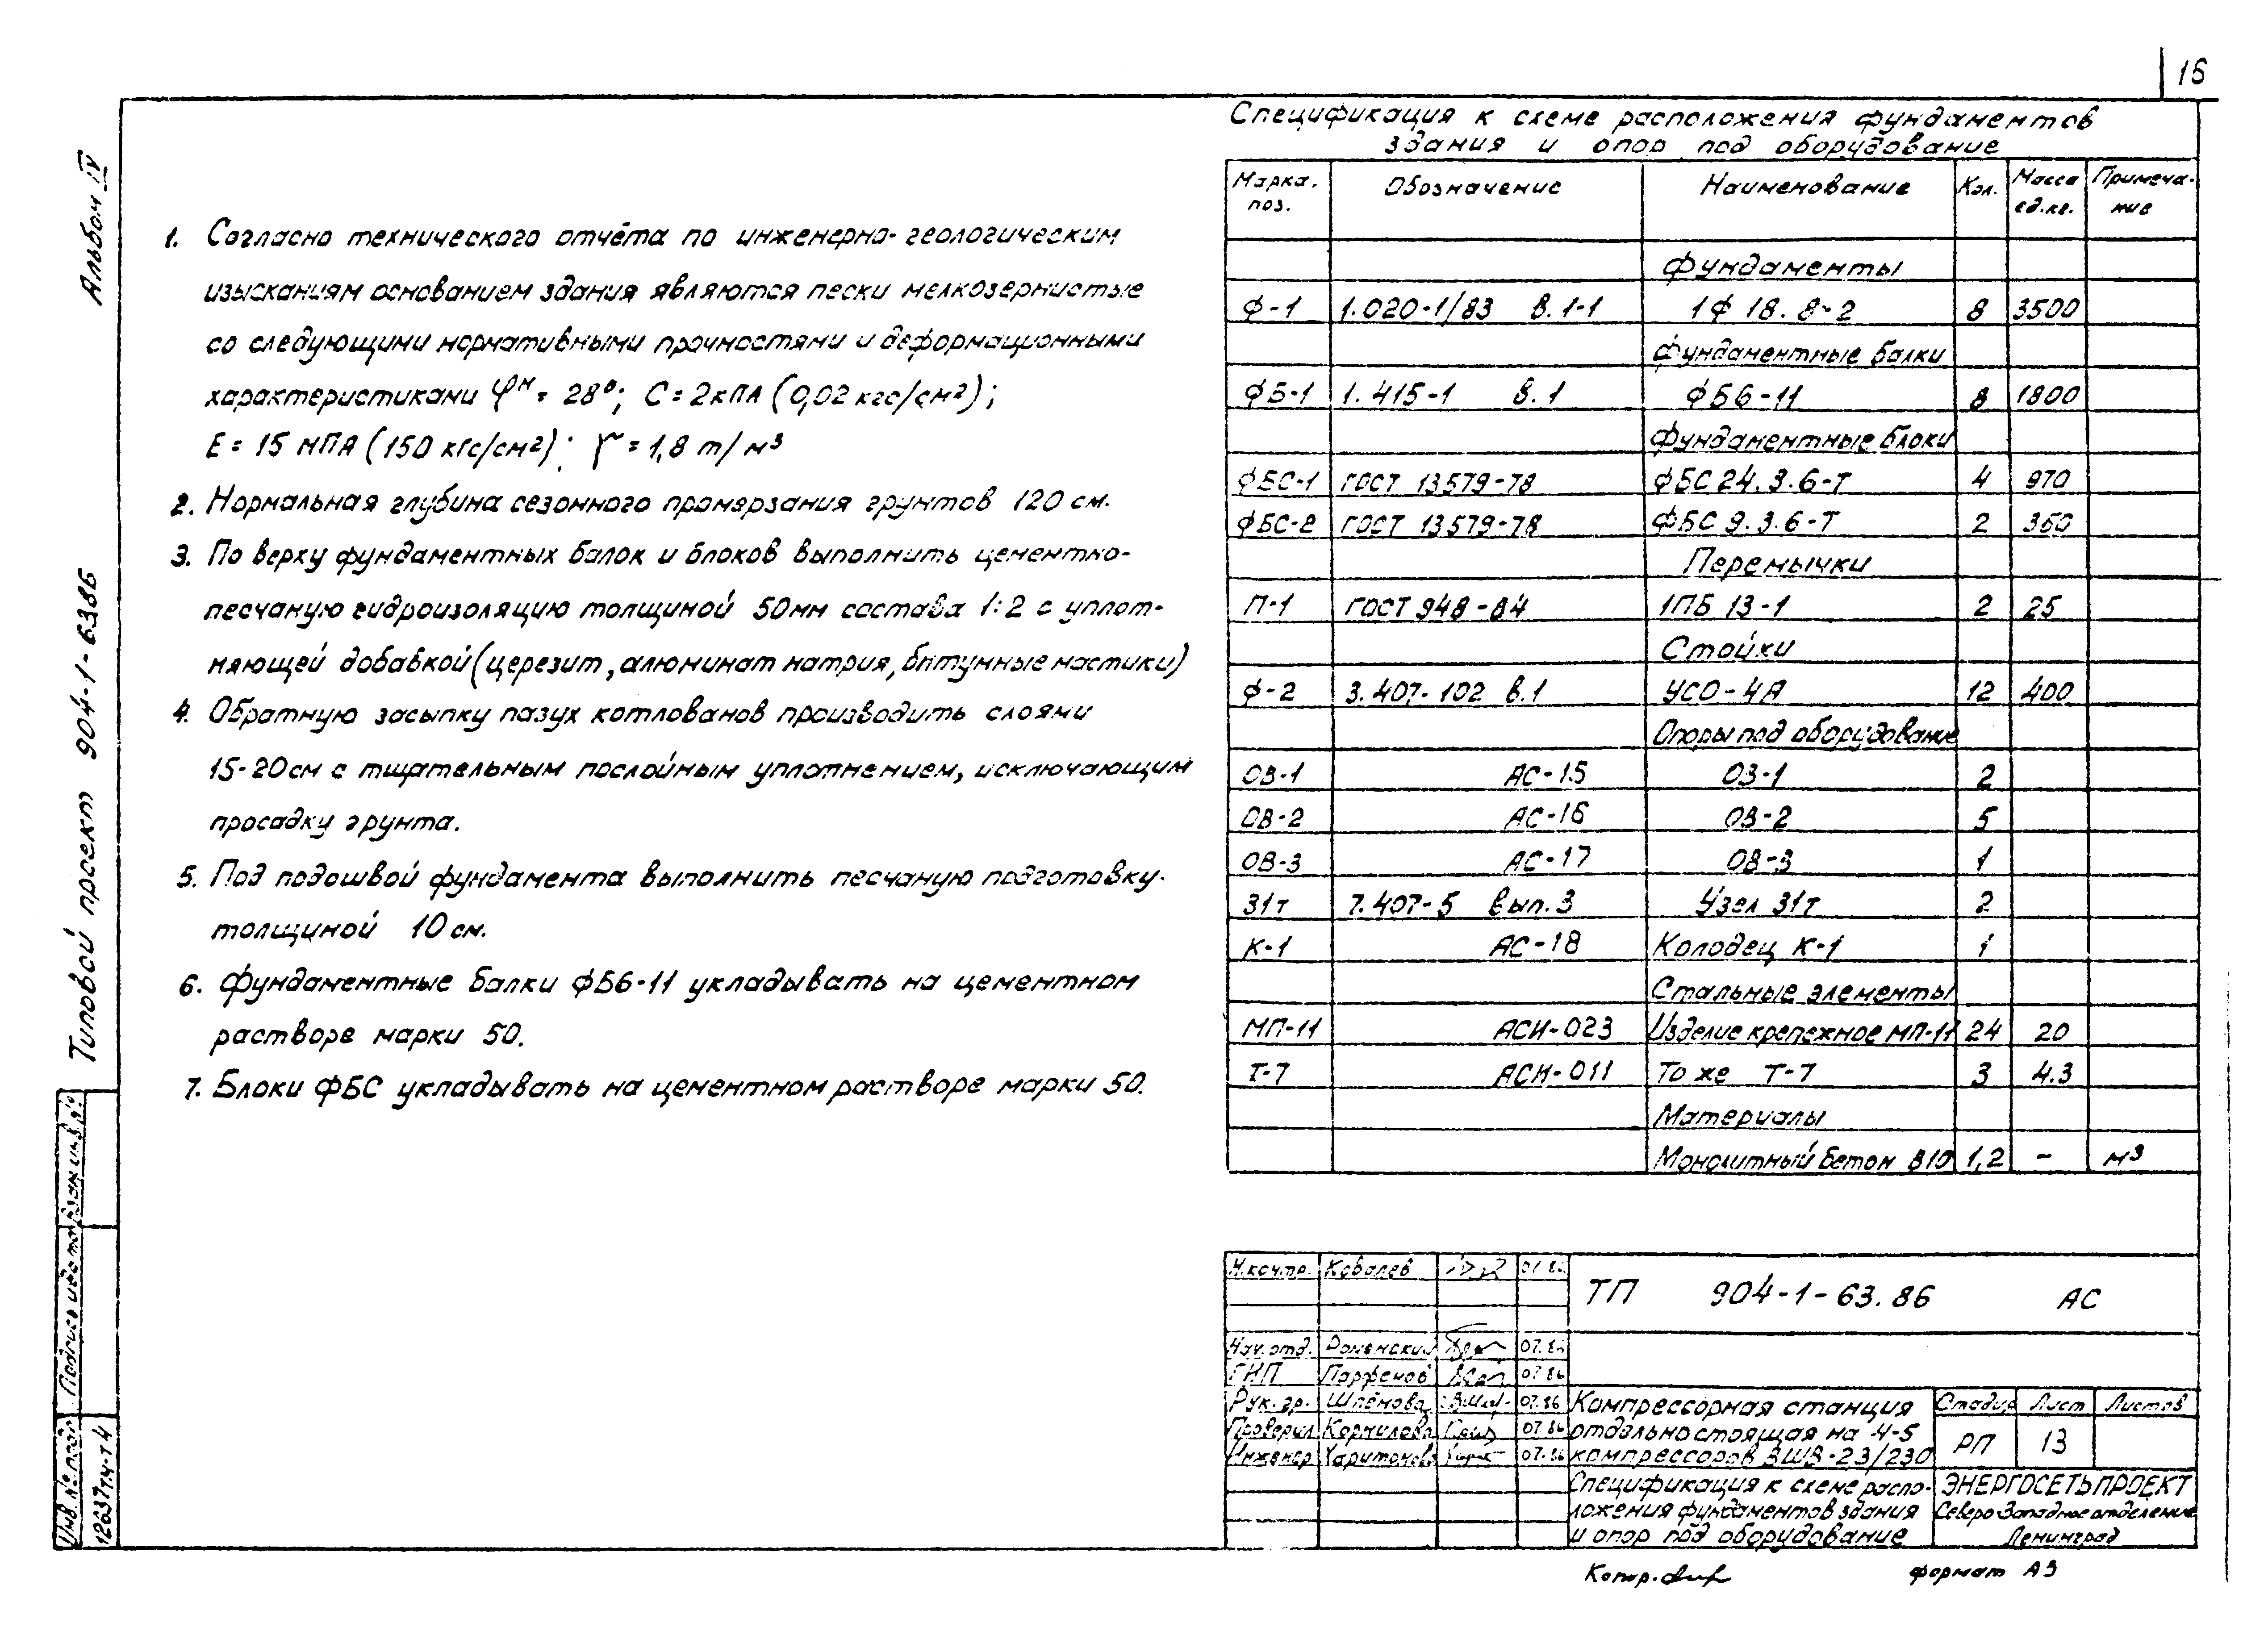 15
Альбом IV
Типовой проект 904-1-63.86
1. Согласно технического отчёта по инженерно-геологическим
изысканиям основанием здания являются пески мелкозернистые
со следующими нормативными прочностями и деформационными
характеристиками φᴴ = 28°; С = 2кПА (0,02 кгс/см²);
Е = 15 МПА (150 кгс/см²); γ = 1,8 т/м³
2. Нормальная глубина сезонного промерзания грунтов 120 см.
3. По верху фундаментных балок и блоков выполнить цементно-
песчаную гидроизоляцию толщиной 50мм состава 1:2 с уплот-
няющей добавкой (церезит, алюминат натрия, битумные мастики)
4. Обратную засыпку пазух котлованов производить слоями
15-20см с тщательным послойным уплотнением, исключающим
просадку грунта.
5. Под подошвой фундамента выполнить песчаную подготовку
толщиной 10 см.
6. Фундаментные балки ФБ6-11 укладывать на цементном
растворе марки 50.
7. Блоки ФБС укладывать на цементном растворе марки 50.
Спецификация к схеме расположения фундаментов
здания и опор под оборудование
Марка. поз. Обозначение Наименование Кол. Масса ед.кг. Примеча-ние
Фундаменты
Ф-1 1.020-1/83 в.1-1 1Ф 18.8-2 8 3500
Фундаментные балки
ФБ-1 1.415-1 в.1 ФБ6-11 8 1800
Фундаментные блоки
ФБС-1 ГОСТ 13579-78 ФБС 24.3.6-Т 4 970
ФБС-2 ГОСТ 13579-78 ФБС 9.3.6-Т 2 350
Перемычки
П-1 ГОСТ 948-84 1ПБ 13-1 2 25
Стойки
Ф-2 3.407-102 в.1 УСО-4А 12 400
Опоры под оборудование
ОВ-1 АС-15 ОВ-1 2
ОВ-2 АС-16 ОВ-2 5
ОВ-3 АС-17 ОВ-3 1
31т 7.407-5 вып.3 Узел 31т 2
К-1 АС-18 Колодец К-1 1
Стальные элементы
МП-11 АСИ-023 Изделие крепежное МП-11 24 20
Т-7 АСИ-011 То же Т-7 3 4.3
Материалы
Монолитный бетон В10 1,2 - м³
Н.контр. Ковалев 07.86
ТП 904-1-63.86 АС
Нач.отд. Роменский 07.86
ГИП Парфенов 07.86
Рук.гр. Шлёнова 07.86
Проверил Корнилова 07.86
Инженер Харитонова 07.86
Компрессорная станция
отдельностоящая на 4-5
компрессоров ВШВ-2,3/230
Стадия Лист Листов
РП 13
Спецификация к схеме распо-
ложения фундаментов здания
и опор под оборудование
ЭНЕРГОСЕТЬПРОЕКТ
Северо-Западное отделение
Ленинград
Инв.№ подл. Подпись и дата Взам инв.№
12637тм-т4
Копир. формат А3